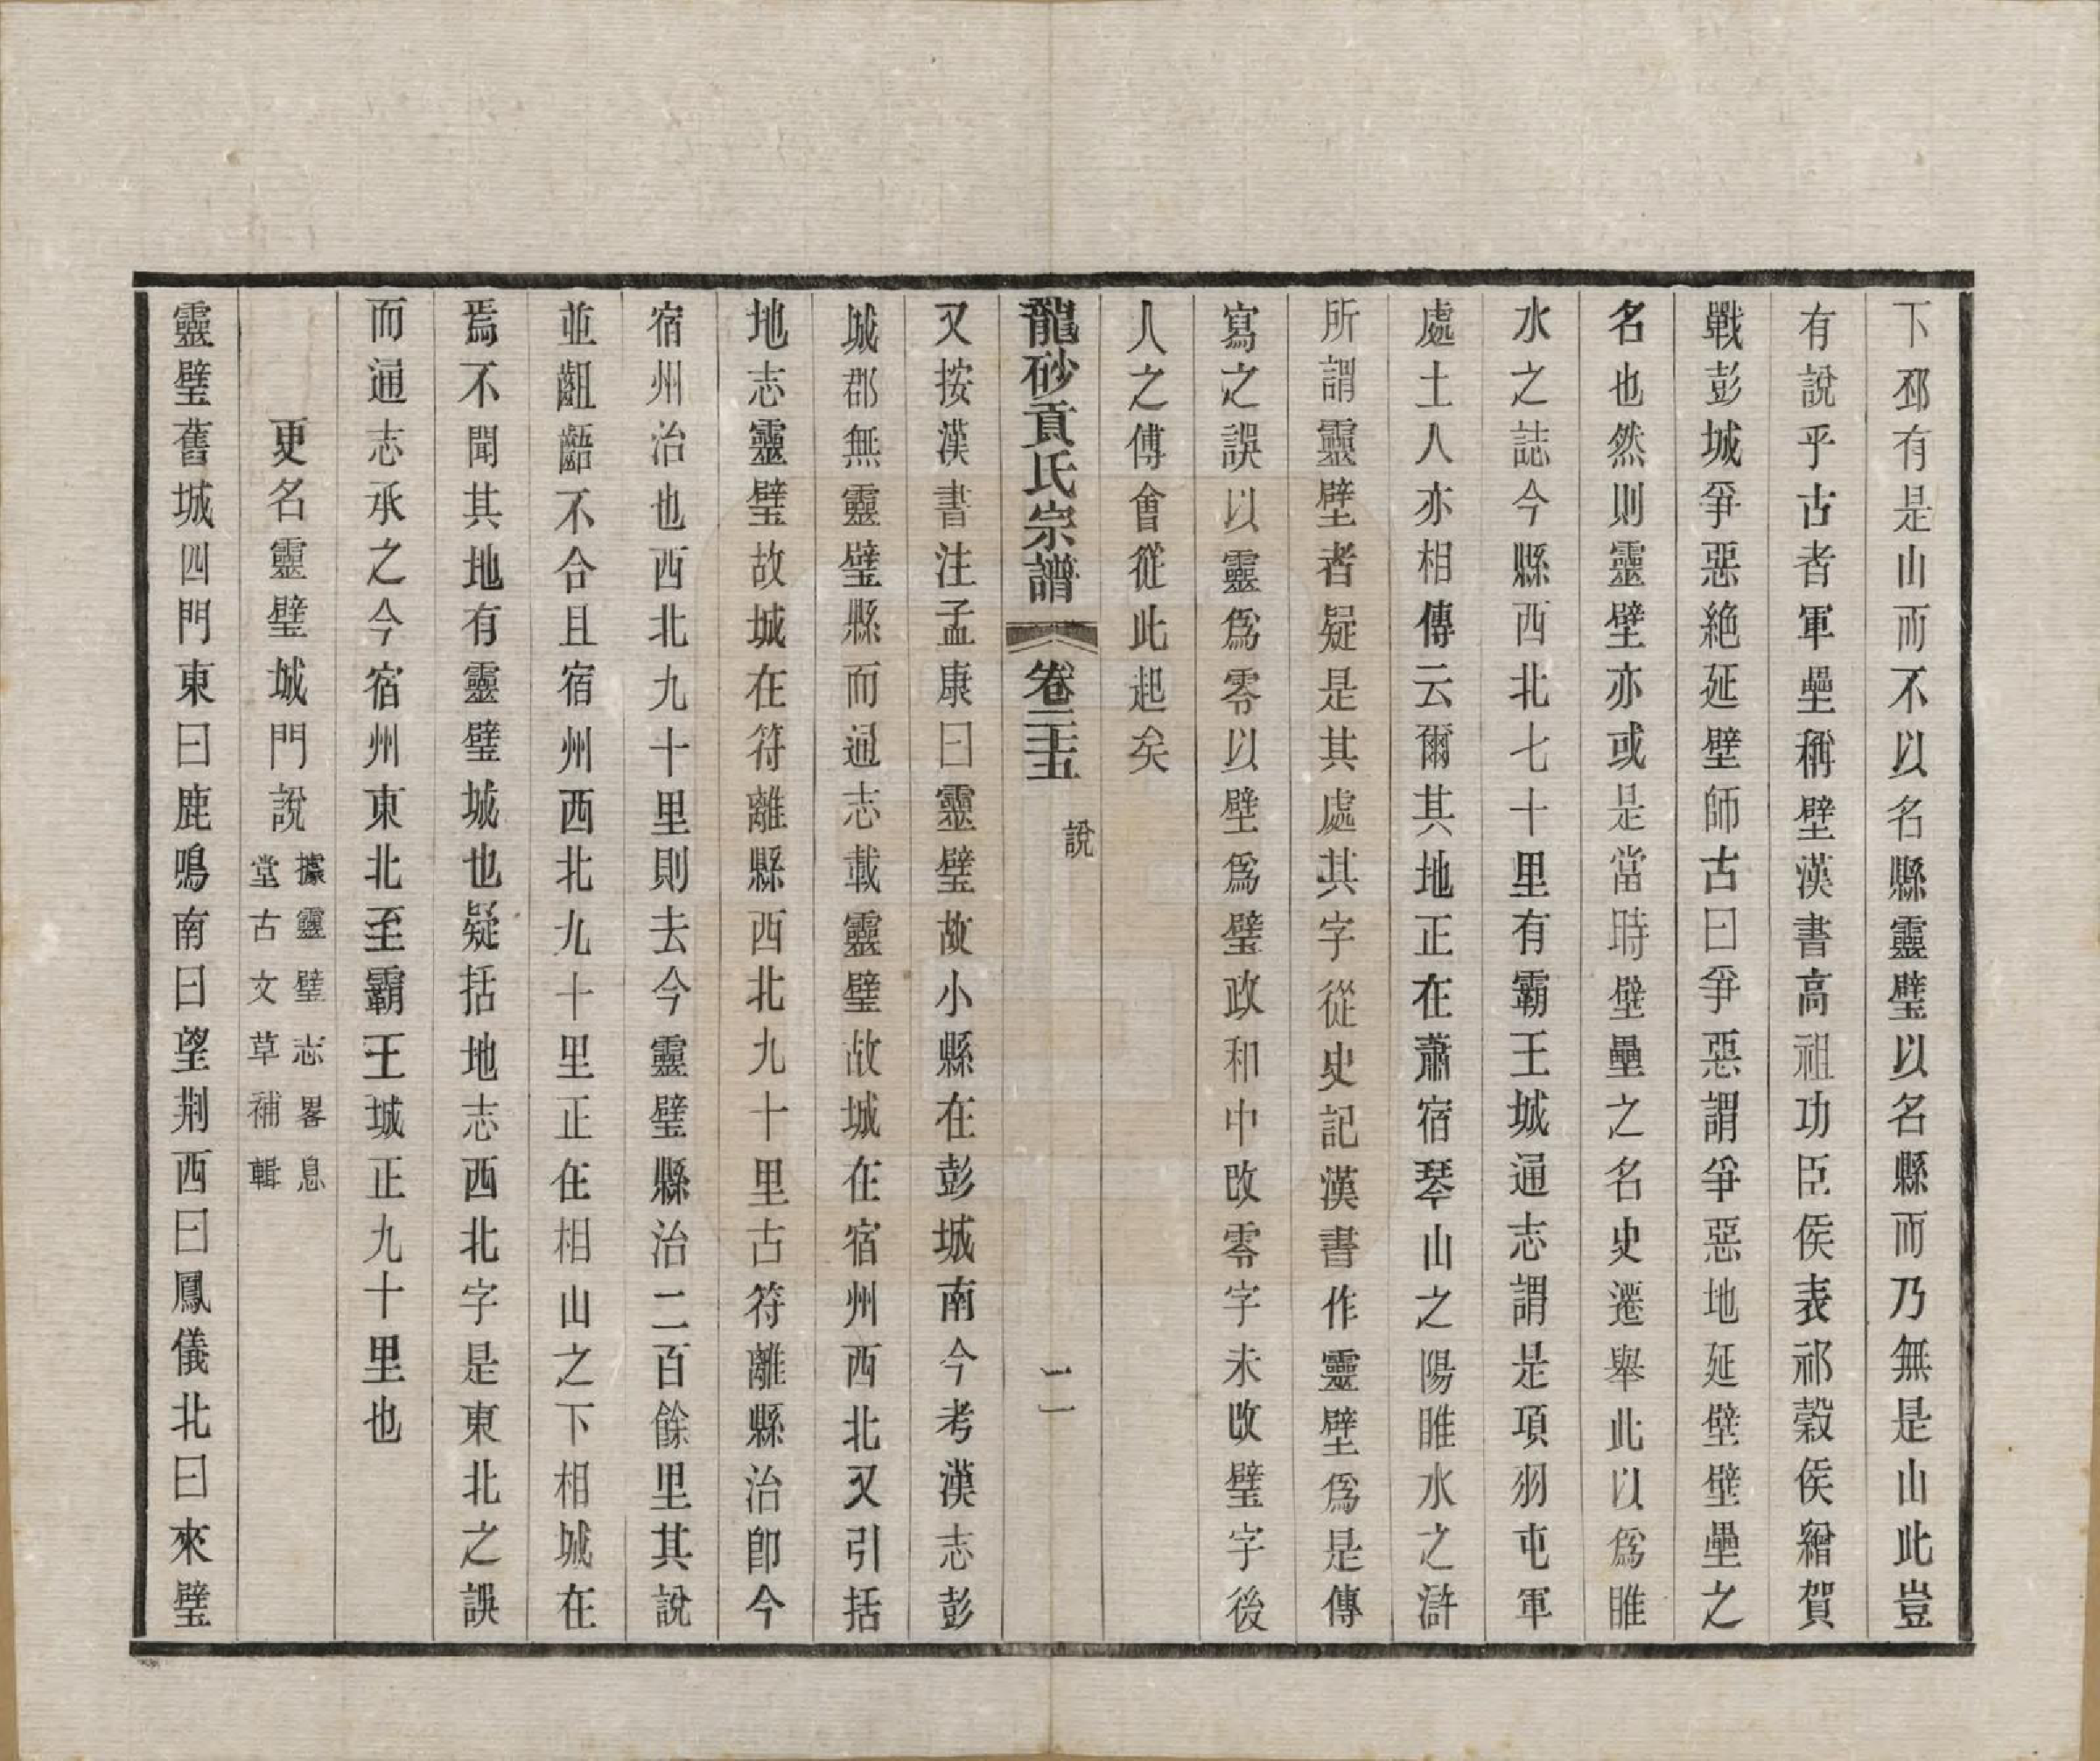 下邳有是山而不以名縣靈璧以名縣而乃無是山此豈
有說乎古者軍壘稱壁漢書高祖功臣侯表祁穀侯繒賀
戰彭城爭惡絶延壁師古曰爭惡謂爭惡地延壁壁壘之
名也然則靈壁亦或是當時壁壘之名史遷舉此以爲睢
水之誌今縣西北七十里有霸王城通志謂是項羽屯軍
處土人亦相傳云爾其地正在蕭宿琴山之陽睢水之滸
所謂靈壁者疑是其處其字從史記漢書作靈壁爲是傳
寫之誤以靈爲零以壁爲璧政和中改零字未改璧字後
人之傅會從此起矣
龍砂貢氏宗譜 卷三十五 說 二
又按漢書注孟康曰靈璧故小縣在彭城南今考漢志彭
城郡無靈璧縣而通志載靈璧故城在宿州西北又引括
地志靈璧故城在符離縣西北九十里古符離縣治卽今
宿州治也西北九十里則去今靈璧縣治二百餘里其說
並齟齬不合且宿州西北九十里正在相山之下相城在
焉不聞其地有靈璧城也疑括地志西北字是東北之誤
而通志承之今宿州東北至霸王城正九十里也
更名靈璧城門說 據靈璧志畧息
堂古文草補輯
靈璧舊城四門東曰鹿鳴南曰望荆西曰鳳儀北曰來璧